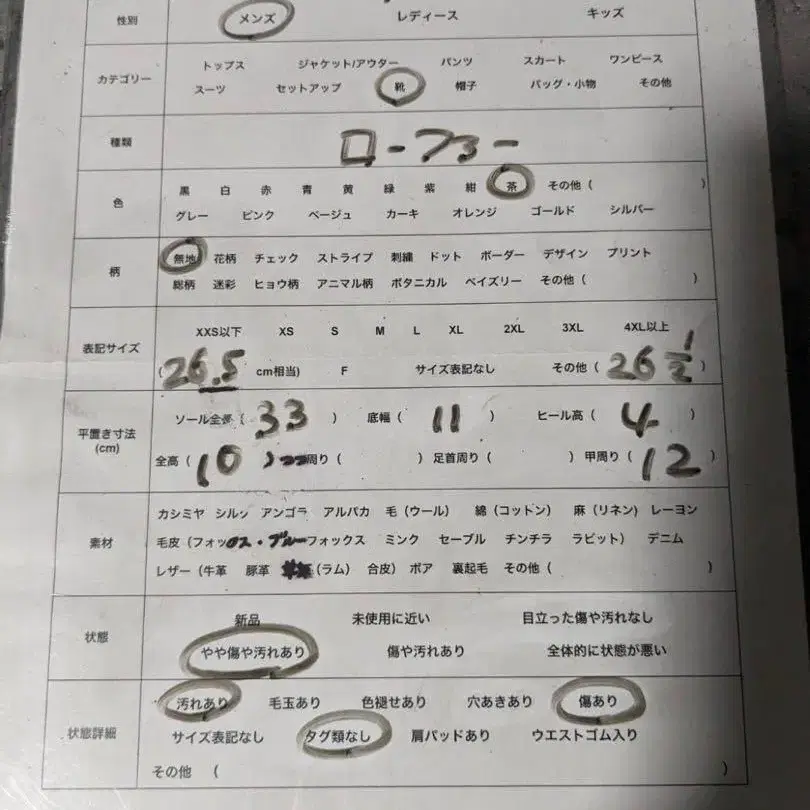 性別 メンズ レディース キッズ
カテゴリー
トップス ジャケット/アウター パンツ スカート ワンピース
スーツ セットアップ 靴 帽子 バッグ・小物 その他
種類 ローファー
色
黒 白 赤 青 黄 緑 紫 紺 茶 その他 ( )
グレー ピンク ベージュ カーキ オレンジ ゴールド シルバー
柄
無地 花柄 チェック ストライプ 刺繍 ドット ボーダー デザイン プリント
総柄 迷彩 ヒョウ柄 アニマル柄 ボタニカル ペイズリー その他 ( )
表記サイズ
XXS以下 XS S M L XL 2XL 3XL 4XL以上
(26.5 cm相当) F サイズ表記なし その他 (26 1/2)
平置き寸法
(cm)
ソール全長 (33) 底幅 (11) ヒール高 (4)
全高 (10) 周り ( ) 足首周り ( ) 甲周り (12)
素材
カシミヤ シルク アンゴラ アルパカ 毛 (ウール) 綿 (コットン) 麻 (リネン) レーヨン
毛皮 (フォックス・ブルーフォックス ミンク セーブル チンチラ ラビット) デニム
レザー (牛革 豚革 (ラム) 合皮) ボア 裏起毛 その他 ( )
状態
新品 未使用に近い 目立った傷や汚れなし
やや傷や汚れあり 傷や汚れあり 全体的に状態が悪い
状態詳細
汚れあり 毛玉あり 色褪せあり 穴あきあり 傷あり
サイズ表記なし タグ類なし 肩パッドあり ウエストゴム入り
その他 ( )